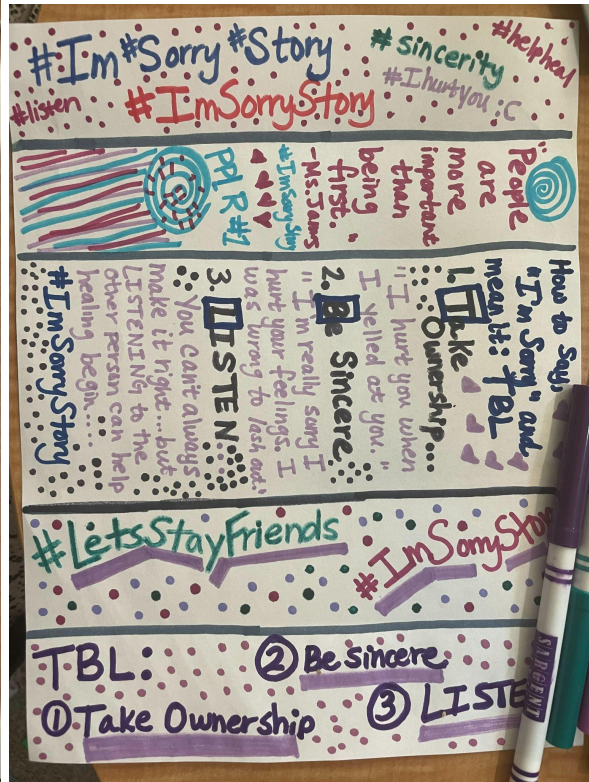 #Im #Sorry #Story
#sincerity
#helpheal
#Ihurtyou :C
#listen
#ImSorryStory
"People
are
more
important
than
being
first."
-Ms Jams
#ImSorryStory
PPL R #1
How to Say:
"I'm Sorry" and
mean it: TBL
1. Take
Ownership...
"I hurt you when
I yelled at you."
2. Be Sincere
"I'm really sorry I
hurt your feelings. I
was wrong to lash out."
3. LISTEN
You can't always
make it right...but
LISTENING to the
other person can help
healing begin....
#ImSorryStory
#LetsStayFriends
#ImSorryStor
TBL:
② Be sincere
① Take Ownership
③ LISTE
SARGENT